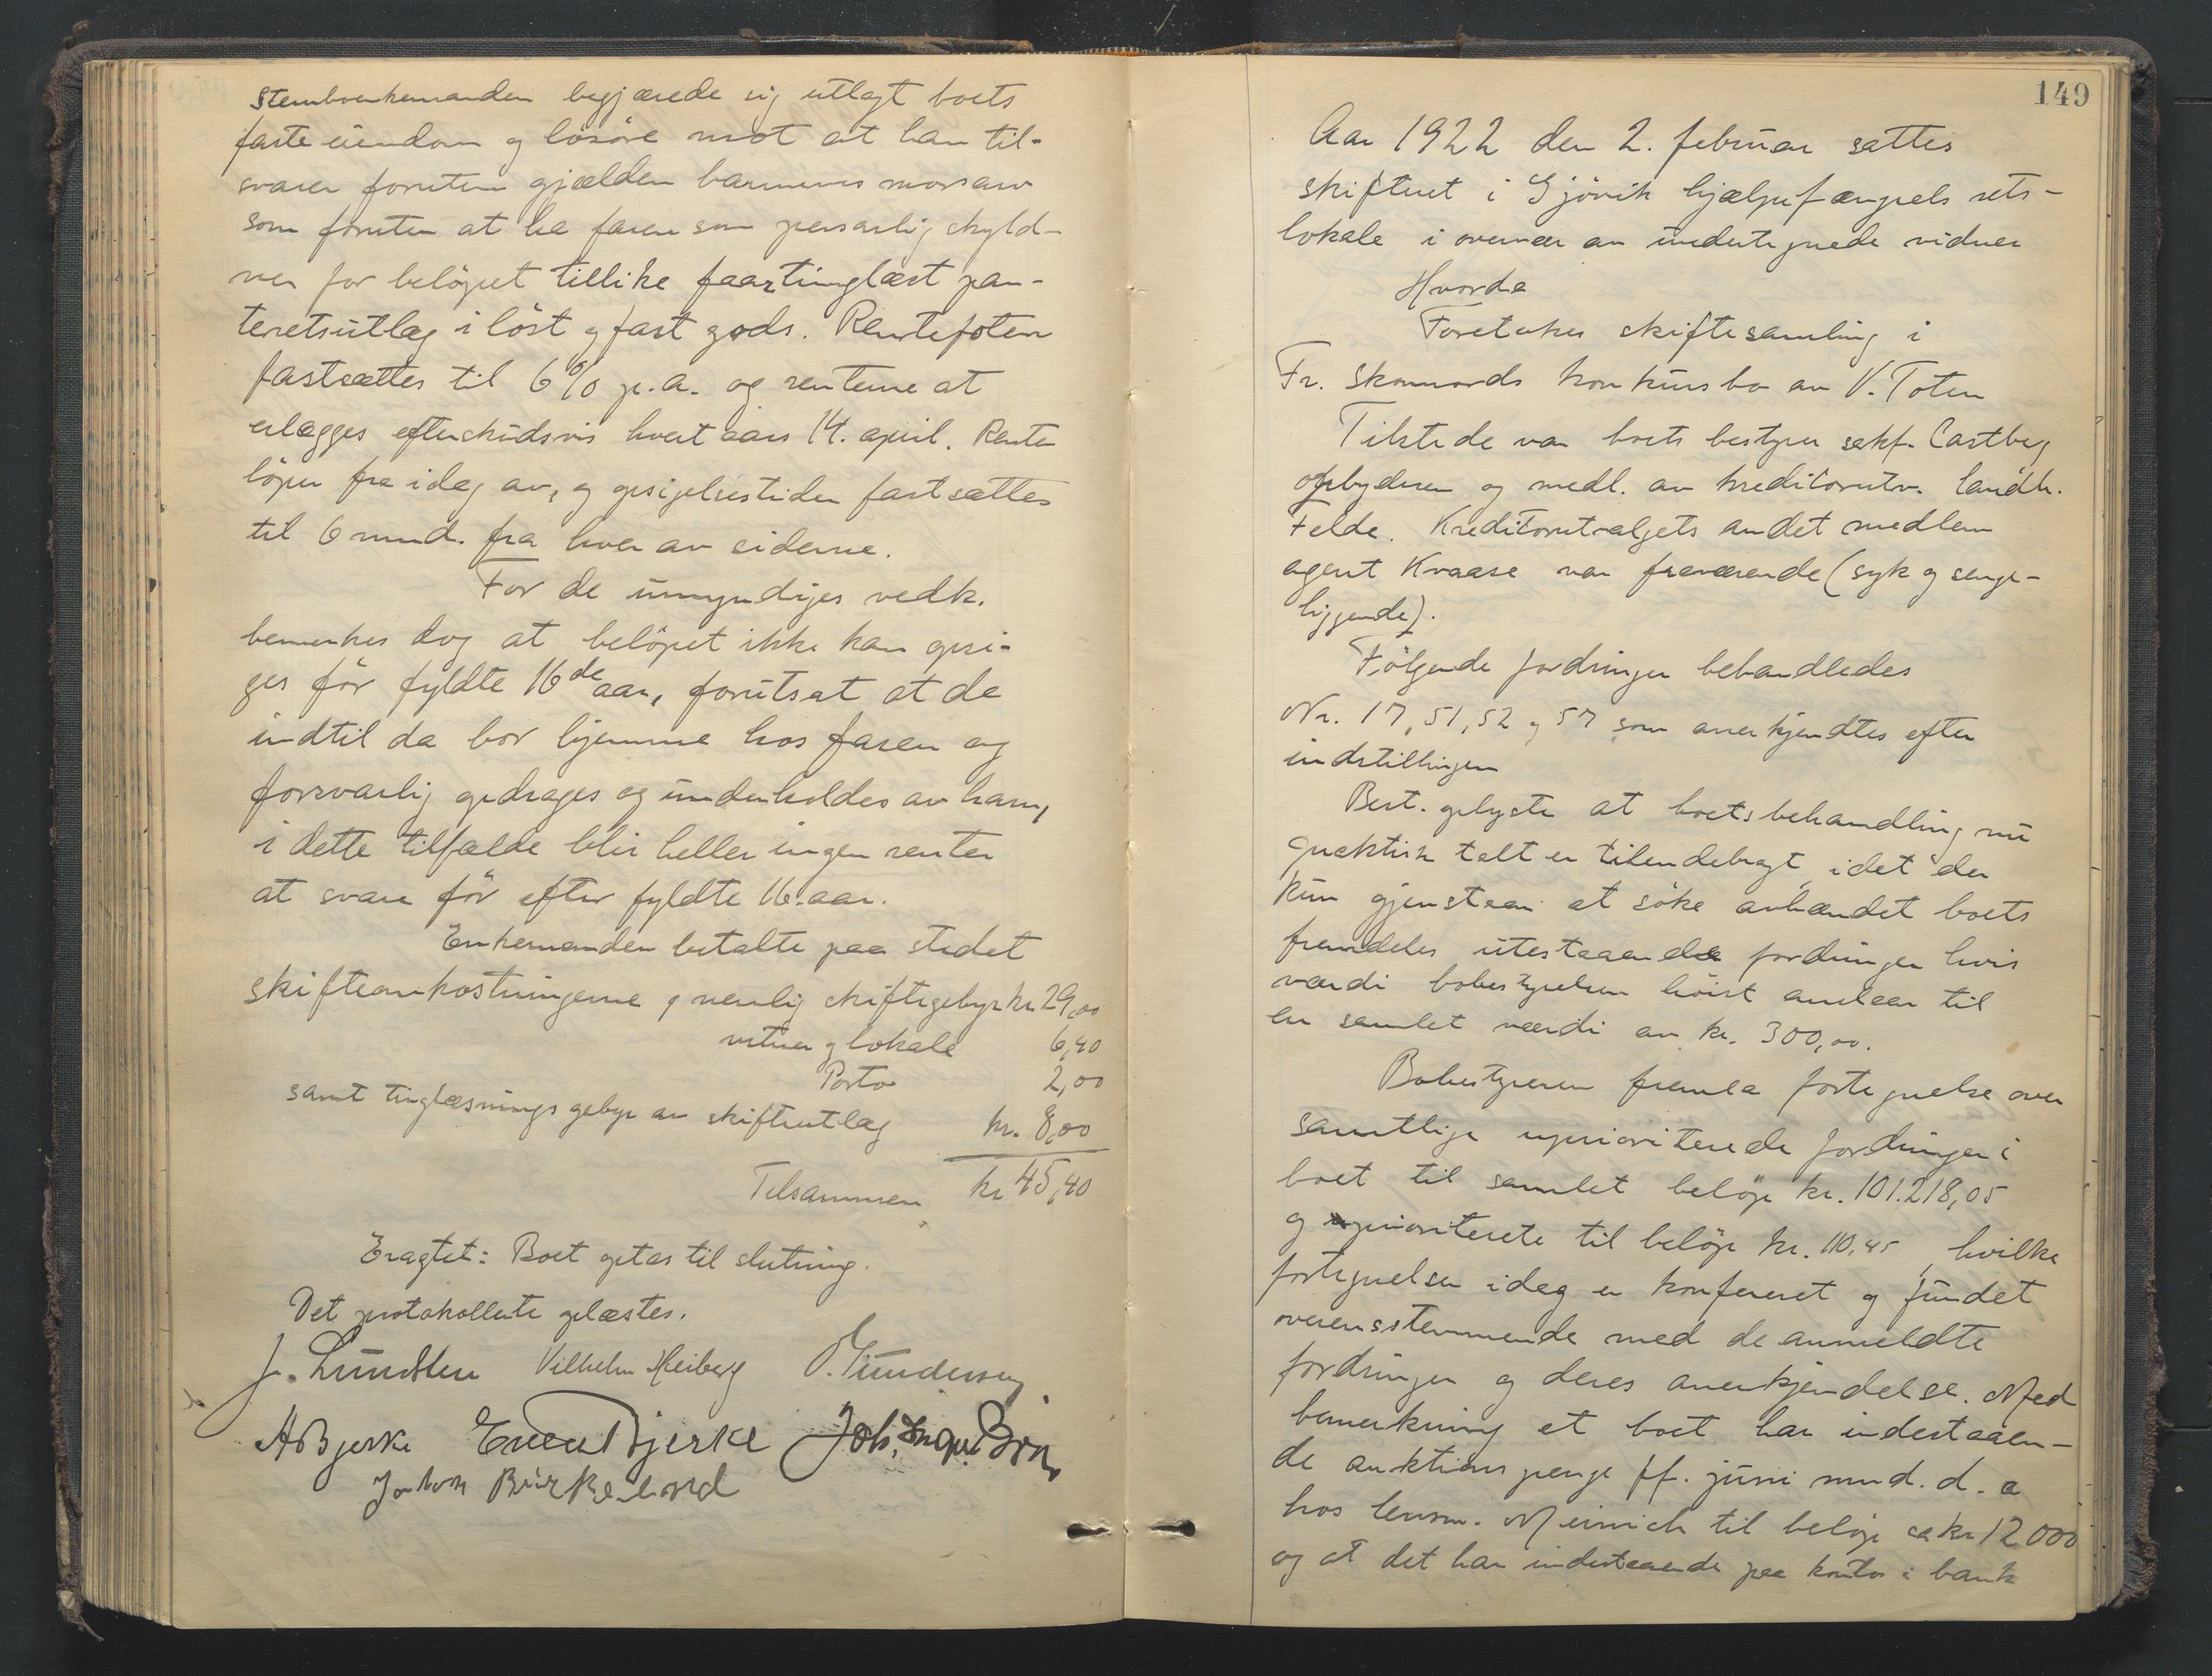 Stervboenkemanden begjærede sig utlagt boets
faste eiendom og lösöre mot at han til-
svarer foruten gjælden barnenes morsarv
som foruten at ha faren som personlig skyld-
ner for belöpet tillike faar tinglæst pan-
teretsutlæg i löst og fast gods. Rentefoten
fastsættes til 6% p.a. og renterne at
erlægges efterskudsvis hvert aars 14. april. Renten
löper fra idag av, og opsigelsestiden fastsættes
til 6 mnd. fra hver av siderne.
For de umyndiges vedk.
bemerkes dog at belöpet ikke kan opsi-
ges för fyldte 16de aar, forutsat at de
indtil da bor hjemme hos faren og
forsvarlig opdrages og underholdes av ham,
i dette tilfælde blir heller ingen renter
at svare för efter fyldte 16. aar.
Enkemanden betalte paa stedet
skifteomkostningerne, nemlig skiftegebyr kr. 29,00
vitner og lokale 6,40
Porto 2,00
samt tinglæsningsgebyr av skifteutlæg kr. 8,00
Tilsammen kr 45,40
Eragtet: Boet optas til slutning.
Det protokollerte oplæstes.
J. Lundsten Vilhelm Heiberg O. Gundersen
A Bjerke Even Bjerke Joh.
Birkelund
149
Aar 1922 den 2. februar sattes
skifteret i Gjövik hjælpefængsels rets-
lokale i overvær av undertegnede vidner
Hvorda
Foretokes skiftesamling i
Fr. Skonnords konkursbo av V. Toten
Tilstede var boets bestyrer sakf. Castberg
opbyderen og medl. av kreditorutv. landh.
Felde. Kreditorutvalgets andet medlem
agent Kvaase var fraværende (syk og senge-
liggende).
Fölgende fordringer behandledes
Nr. 17, 51, 52 og 57 som anerkjendtes efter
indstillingen
Best. oplyste at boets behandling nu
praktisk talt er tilendebragt, idet der
kun gjenstaar at söke avhændet boets
fremdeles utestaaende fordringer hvis
værdi bobestyrelsen höist anslaar til
en samlet værdi av kr. 300,00.
Bobestyreren fremla fortegnelse over
samtlige uprioriterede fordringer i
boet til samlet belöp kr. 101.218,05
og prioriterete til belöp kr. 110,45, hvilke
fortegnelser idag er konfereret og fundet
overensstemmende med de anmeldte
fordringer og deres anerkjendelse. Med
bemerkning at boet har indestaaen-
de auktionspenge pf. juni mnd. d. a
hos lensm. Meinich til belöp ca kr 12 000
og at det har indestaaende paa konto i bank